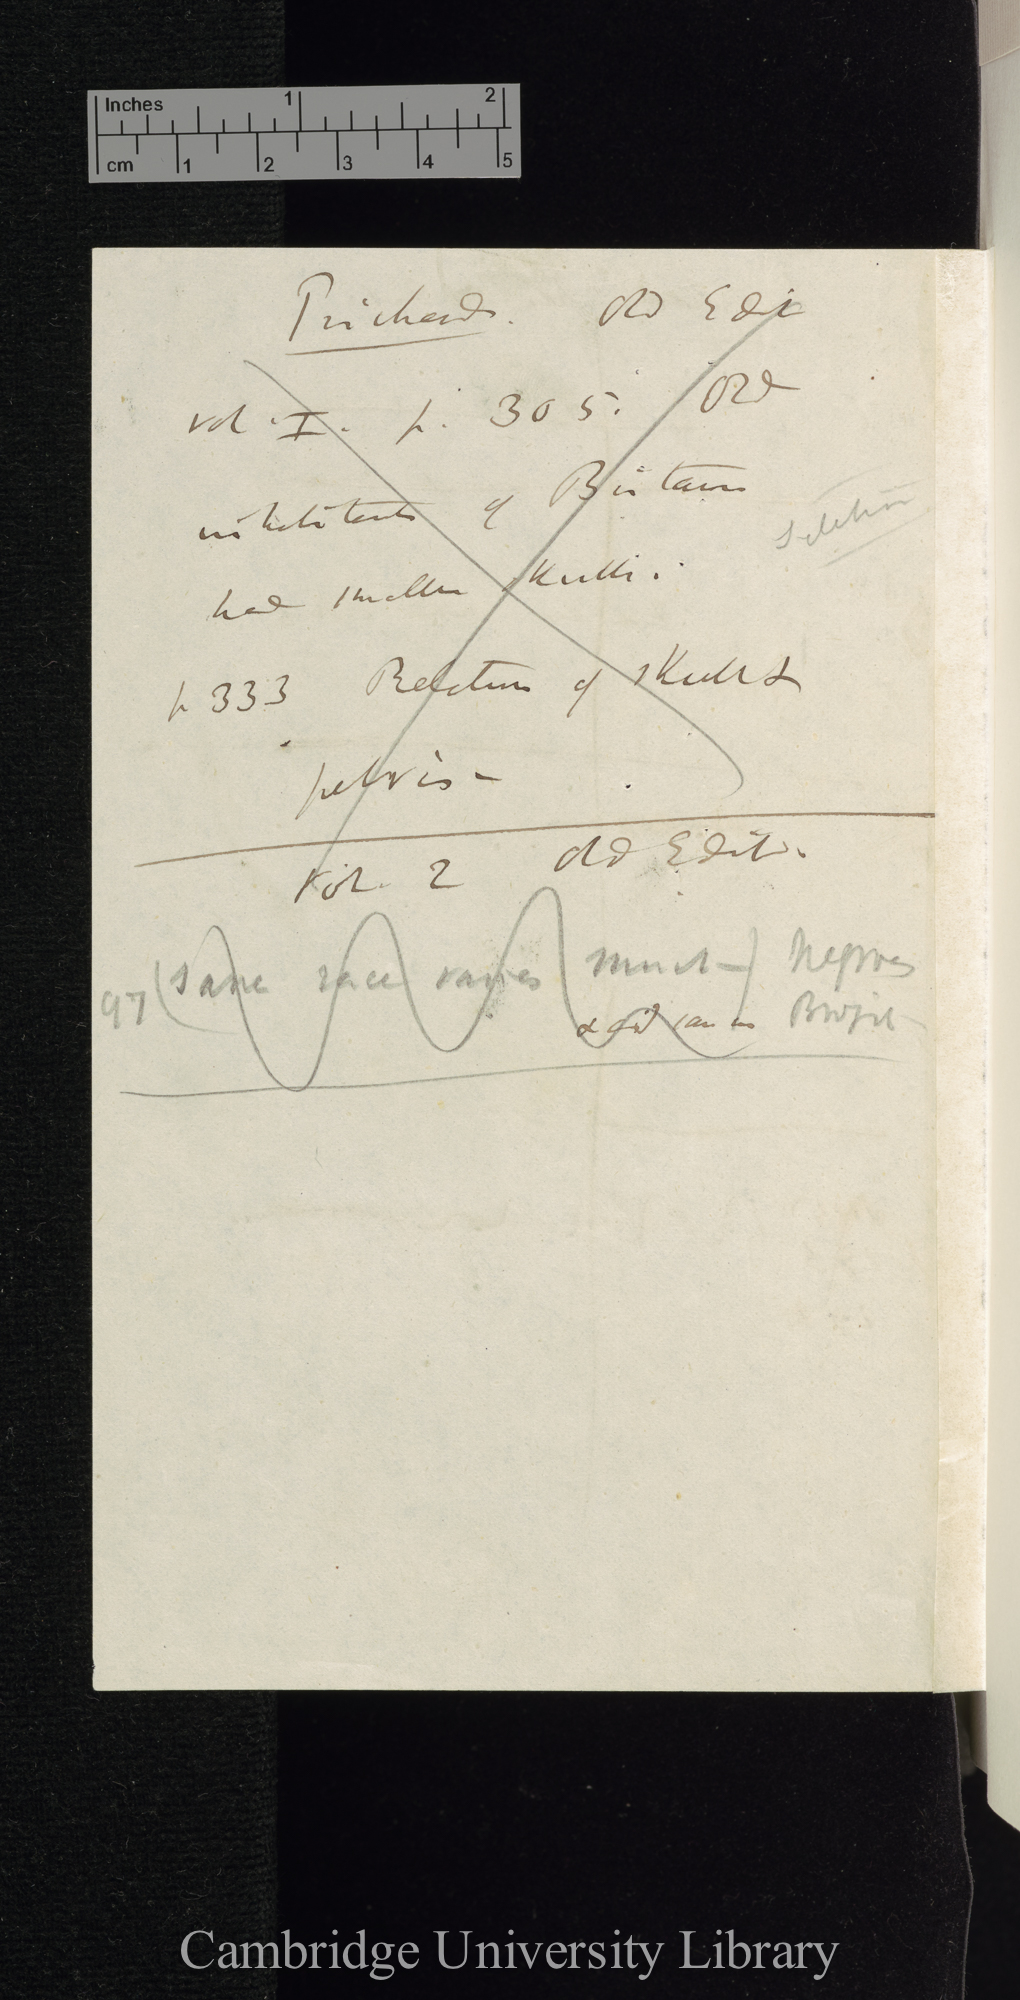 Inches 1 2
cm 1 2 3 4 5
Prichard. Old Edit
vol. I. p. 305. Old
inhabitants of Britain
Selection
had smaller skulls.
p 333 Relation of skull &
pelvis –
Vol. 2 Old Edit.
97 (Same race varies (much –) Negroes
Brazil
Cambridge University Library